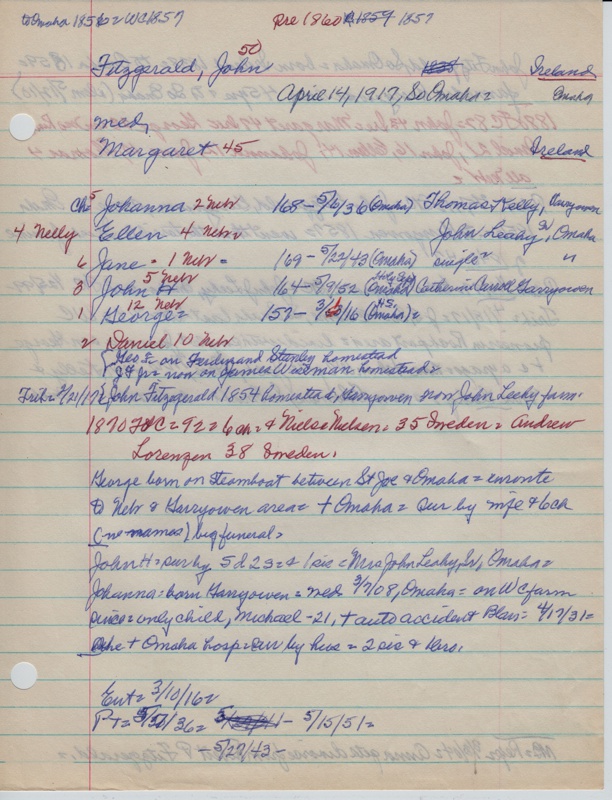 to Omaha 1856 = WC 1857 Pre 1860 1857
Fitzgerald, John 50 Ireland
April 14, 1917, So Omaha = Omaha
med,
Margaret 45 Ireland
ch = 5 Johanna 2 Nebr 168 - 5/6/36 (Omaha) Thomas Kelly, Garryowen
4 Nelly Ellen 4 Nebr John Leahy Sr, Omaha
6 Jane = 1 Nebr = 169 - 5/22/43 (Omaha) single = "
3 John H 5 Nebr 164 - 5/9/52 (Omaha) Holy Sep Catherine Carroll Garryowen
1 George = 12 Nebr 157 - 3/ /16 (Omaha) = H.S.
2 Daniel 10 Nebr
Geo F = on Ferdinand Stanley homestead
J F Jr = now on James Wiseman homestead =
Trib = 9/21/17 = John Fitzgerald 1854 homestead, Garryowen now John Leahy farm.
1870 WC = 92 = 6 ch = & Niels Nielsen = 35 Sweden = Andrew
Lorenzen 38 Sweden.
George born on steamboat between St Joe & Omaha = enroute
to Nebr & Garryowen area = + Omaha = sur by wife & 6 ch
(no names) big funeral =
John H = sur by 5 d 2 s = & 1 sis = Mrs John Leahy, Sr, Omaha =
Johanna = born Garryowen = med 3/7/08, Omaha = on WC farm
since = only child, Michael - 21, + auto accident Blair = 4/17/31 =
she + Omaha hosp = sur by hus = 2 sis & bros.
Ent = 3/10/16 =
PT = 5/ /36 = - 5/15/51 =
- 5/27/43 -